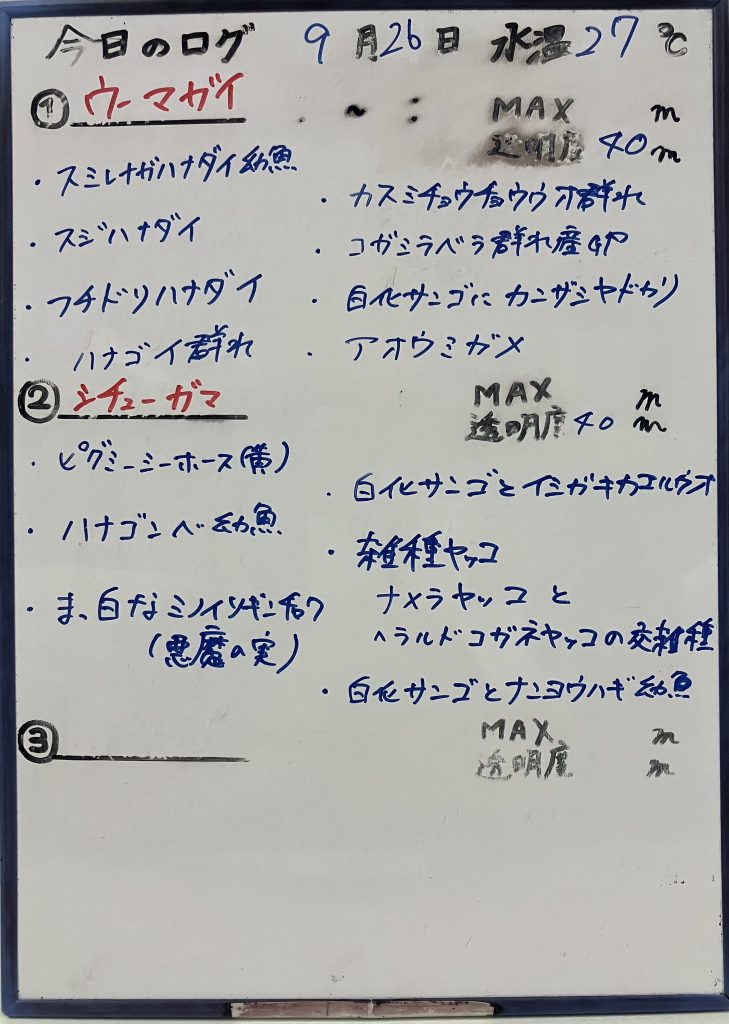 今日のログ 9月26日 水温27℃
① ウーマガイ ~ : MAX m
透明度 40m
・スミレナガハナダイ幼魚
・スジハナダイ
・フチドリハナダイ
・ハナゴイ群れ
・カスミチョウチョウウオ群れ
・コガシラベラ群れ産卵
・白化サンゴに カンザシヤドカリ
・アオウミガメ
② シチューガマ MAX m
透明度 40 m
・ピグミーシーホース(黄)
・ハナゴンベ幼魚
・まっ白なミノイソギンチャク
(悪魔の実)
・白化サンゴとイシガキカエルウオ
・雑種ヤッコ
ナメラヤッコと
ヘラルドコガネヤッコの交雑種
・白化サンゴとナンヨウハギ幼魚
③ MAX m
透明度 m